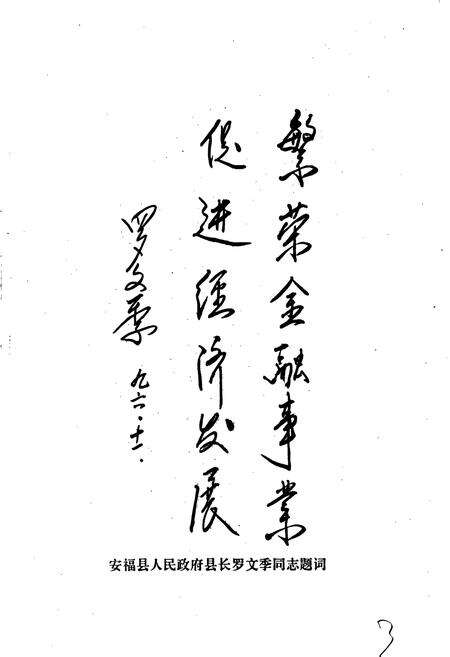 繁荣金融事业
促进经济发展
罗文季
九六.十一.
安福县人民政府县长罗文季同志题词
3